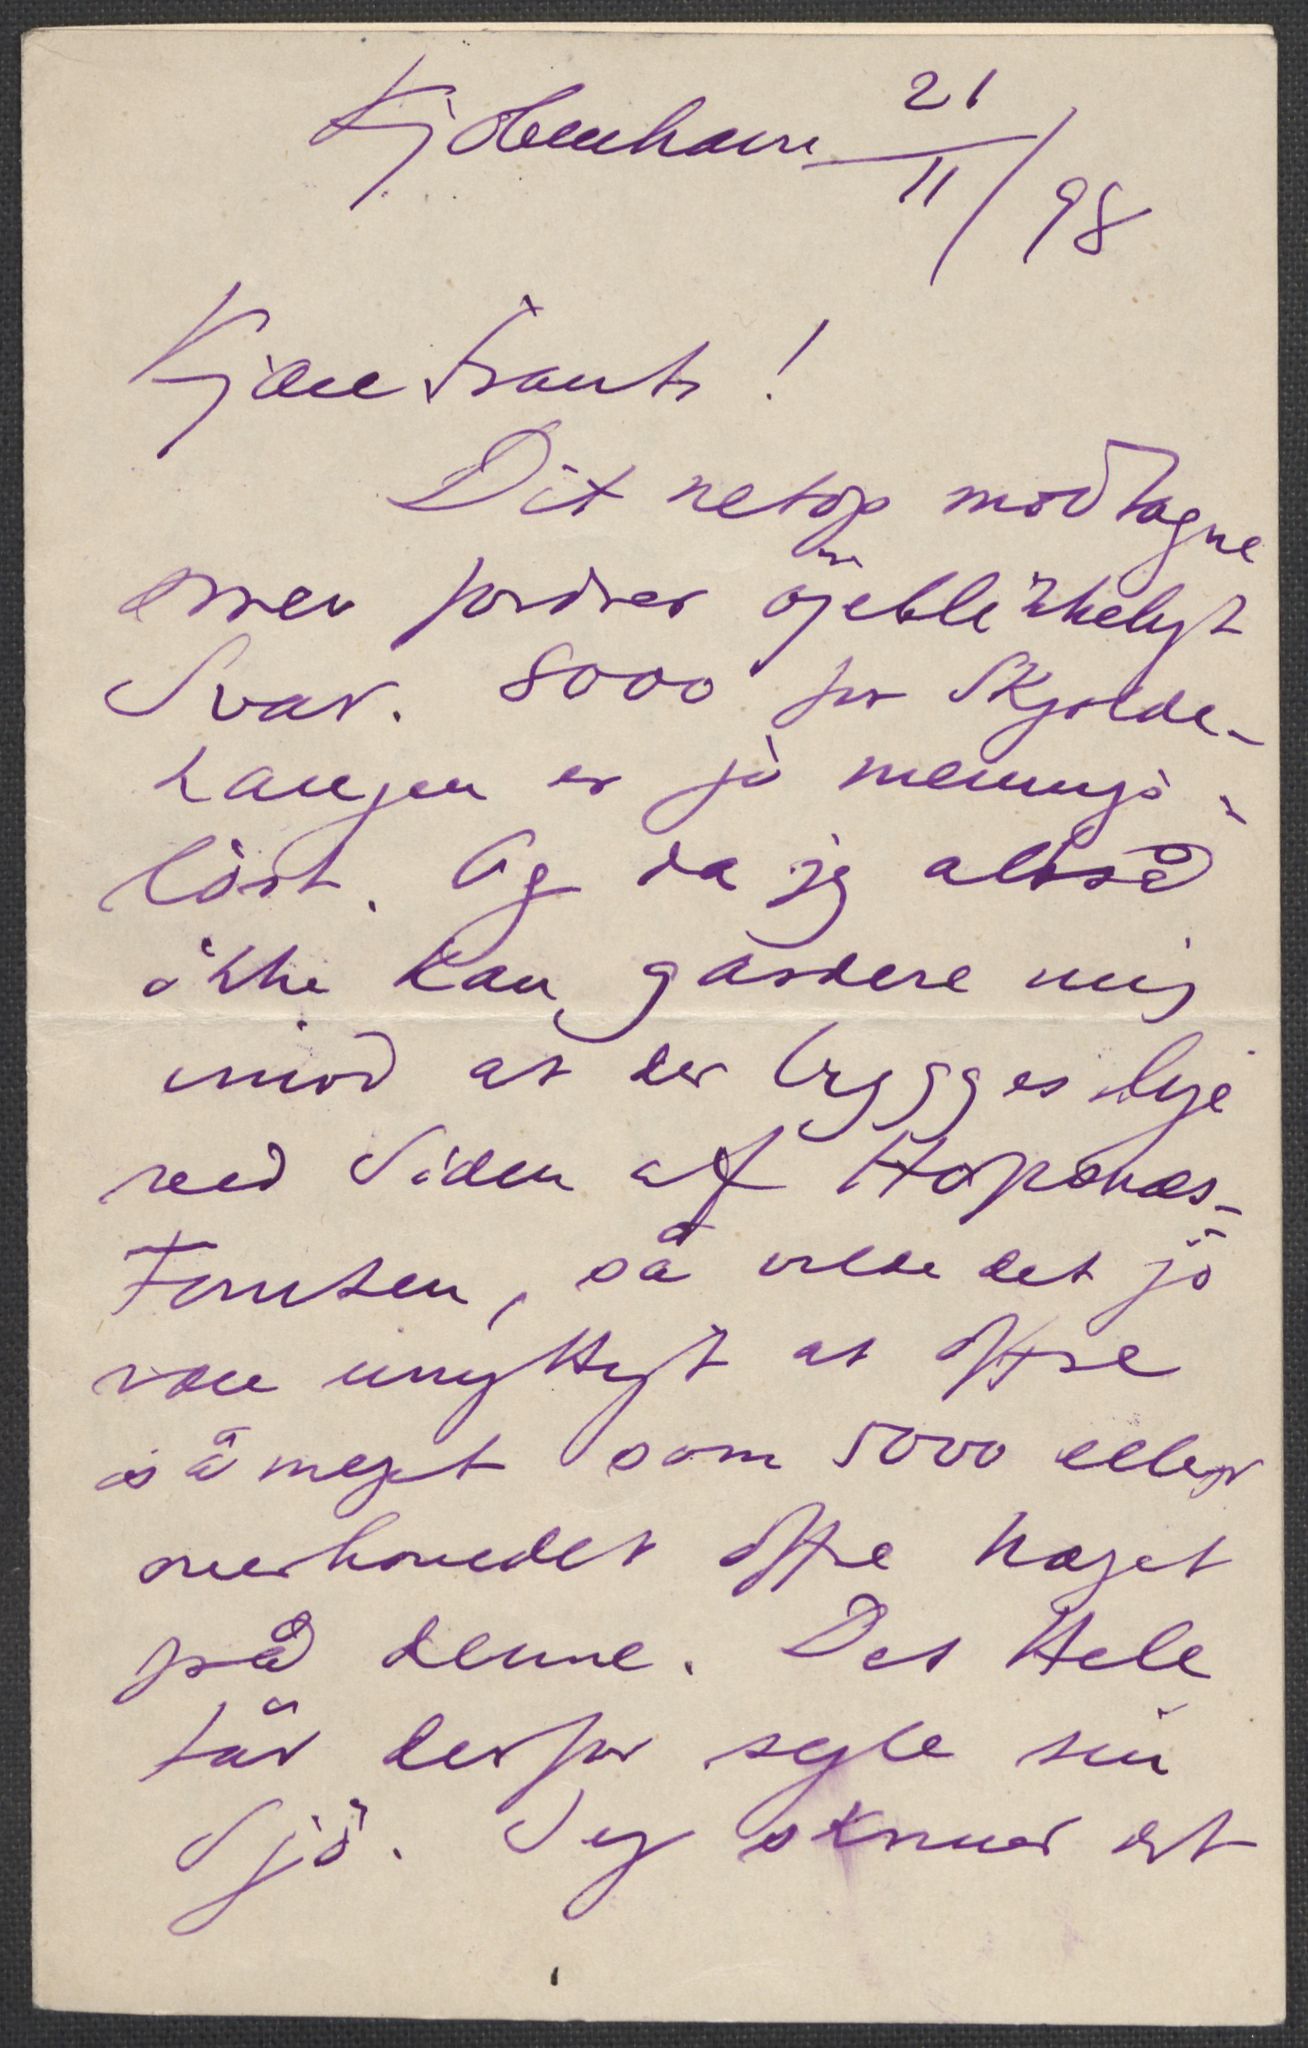 Kjöbenhavn 21/11/98
Kjære Frants!
Dit netop modtagne
Brev fordrer öjeblikkeligt
Svar. 8000 for Skjolde-
haugen er jo menings-
löst. Og da jeg altså
ikke kan gardere mig
imod at der bygges lige
ved Siden af Hopsnæs-
Tomten, så vilde det jo
være unyttigt at offre
så meget som 5000 eller
overhovedet offre noget
på denne. Det Hele
får derfor sejle sin
Sjö. Jeg skriver det